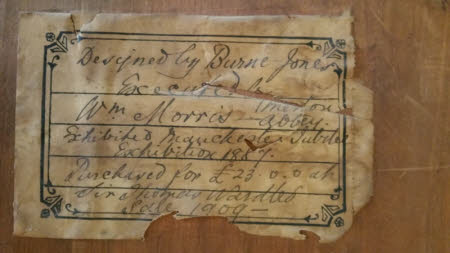 Designed by Burne Jones
Executed
Wm Morris - Abbey.
Exhibited Manchester Jubilee
Exhibition 1887.
Purchased for £23.0.0 at
Sir Thomas Wardles
Sale 1909 -